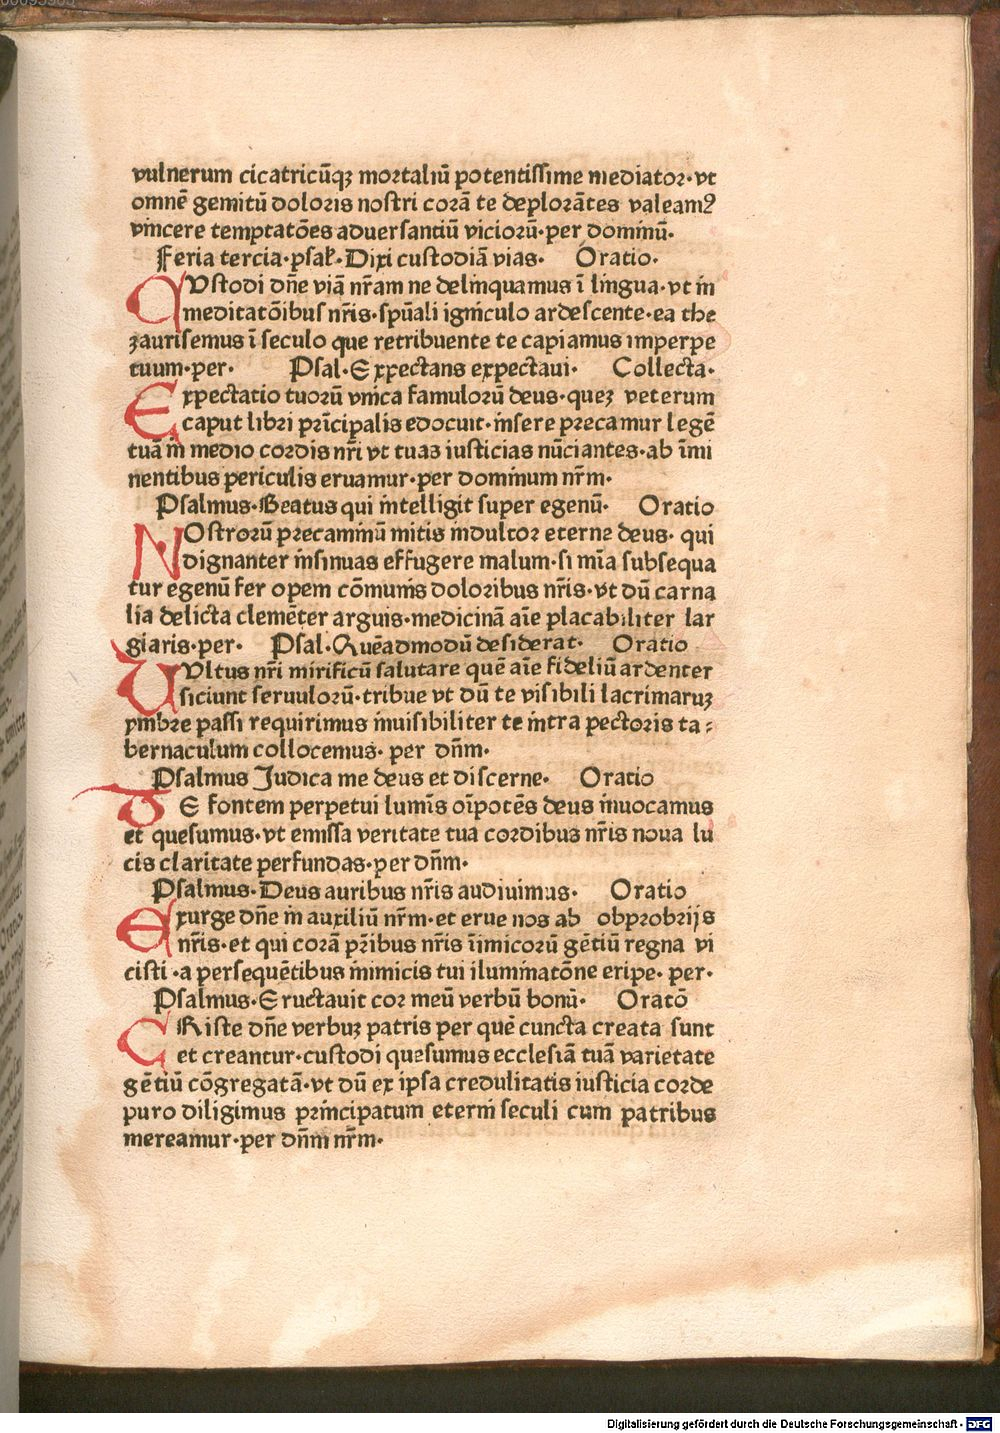 vulnerum cicatricūqꝫ mortaliū potentissime mediator·vt
omnē gemitū doloris nostri corā te deplorātes valeamꝰ
vincere temptatōes aduersantiū viciorū·per dominū·
Feria tercia·psal̄·Dixi custodiā vias· Oratio·
CVstodi dn̄e viā nr̄am ne delinquamus ī lingua·vt in
meditatōibus nr̄is·spūali igniculo ardescente·ea the
zaurisemus ī seculo que retribuente te capiamus imperpe
tuum·per· Psal·Expectans expectaui· Collecta·
Expectatio tuorū vnica famulorū deus·queꝫ veterum
caput libri prīcipalis edocuit·insere precamur legē
tuā in medio cordis nr̄i vt tuas iusticias nūciantes·ab īmi
nentibus periculis eruamur·per dominum nr̄m·
Psalmus·Beatus qui intelligit super egenū· Oratio
NOstrorū precaminū mitis indultor eterne deus· qui
dignanter insinuas effugere malum·si mīa subsequa
tur egenū fer opem cōmunis doloribus nr̄is·vt dū carna
lia delicta clemēter arguis·medicinā aīe placabiliter lar
giaris·per· Psal·Quēadmodū desiderat· Oratio
VVltus nr̄i mirificū salutare quē aīe fideliū ardenter
siciunt seruulorū·tribue vt dū te visibili lacrimaruꝫ
ymbre passi requirimus inuisibiliter te intra pectoris ta⸗
bernaculum collocemus· per dn̄m·
Psalmus Judica me deus et discerne· Oratio
TE fontem perpetui luminis oīpotēs deus inuocamus
et quesumus·vt emissa veritate tua cordibus nr̄is noua lu
cis claritate perfundas·per dn̄m·
Psalmus·Deus auribus nr̄is audiuimus· Oratio
Exurge dn̄e in auxiliū nr̄m·et erue nos ab obprobrijs
nr̄is·et qui corā pr̄ibus nr̄is īimicorū gētiū regna vi
cisti·a persequētibus inimicis tui iluminatōne eripe· per·
Psalmus·Eructauit cor meū verbū bonū· Oratō
CRiste dn̄e verbuꝫ patris per quē cuncta creata sunt
et creantur·custodi quesumus ecclesiā tuā varietate
gētiū cōgregatā·vt dū ex ipsa credulitatis iusticia corde
puro diligimus principatum eterni seculi cum patribus
mereamur·per dn̄m nr̄m·
Digitalisierung gefördert durch die Deutsche Forschungsgemeinschaft - DFG